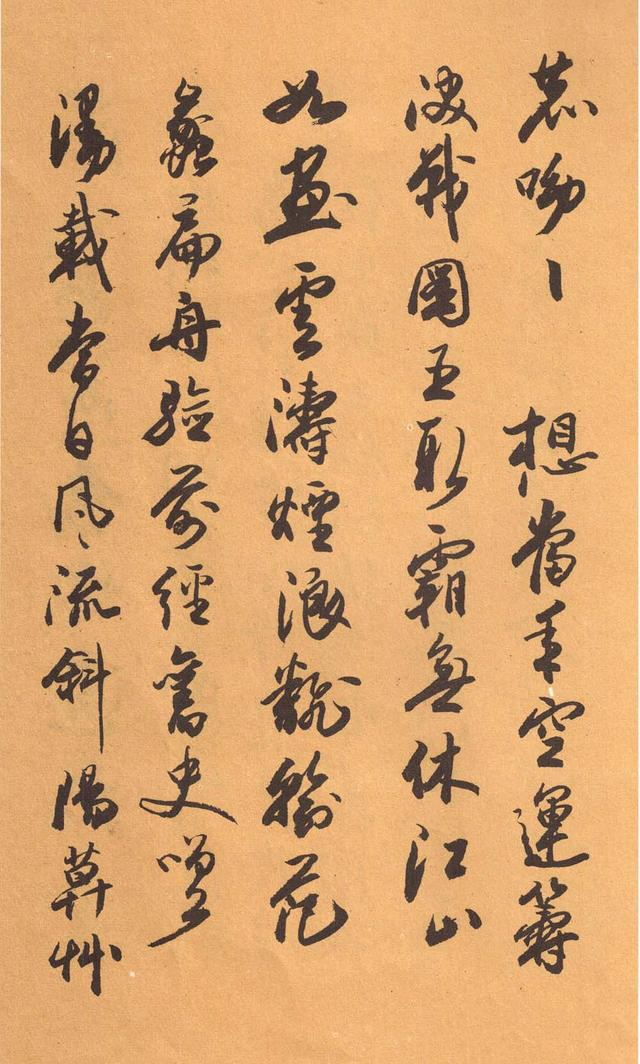 鹿呦〻 想當年空運籌
決戰圖王取霸無休江山
如畫雲濤煙浪飜輸范
蠡扁舟验前經舊史嗟
漫載當日風流斜陽暮艸